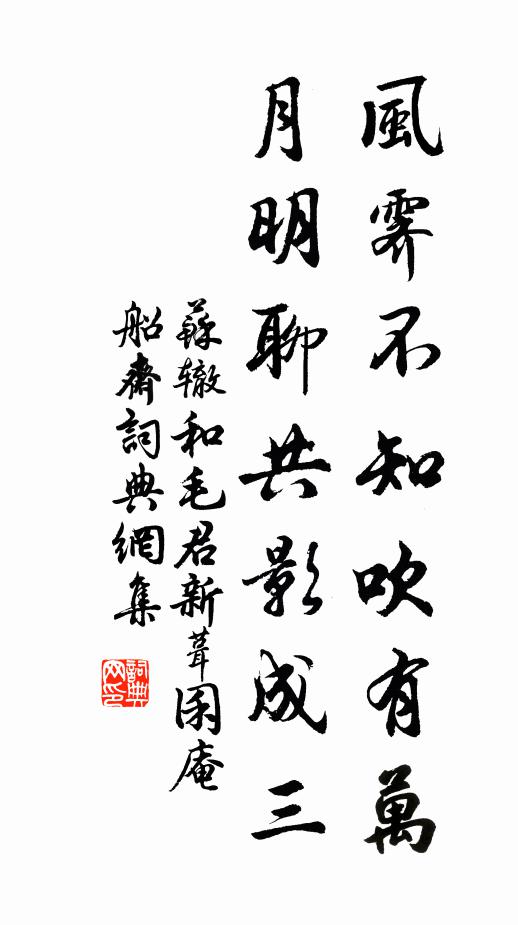 風霽不知吹有萬
月明聊共影成三
蘇辙和毛君新葺囷庵
船齋詞典網集
詞典网印